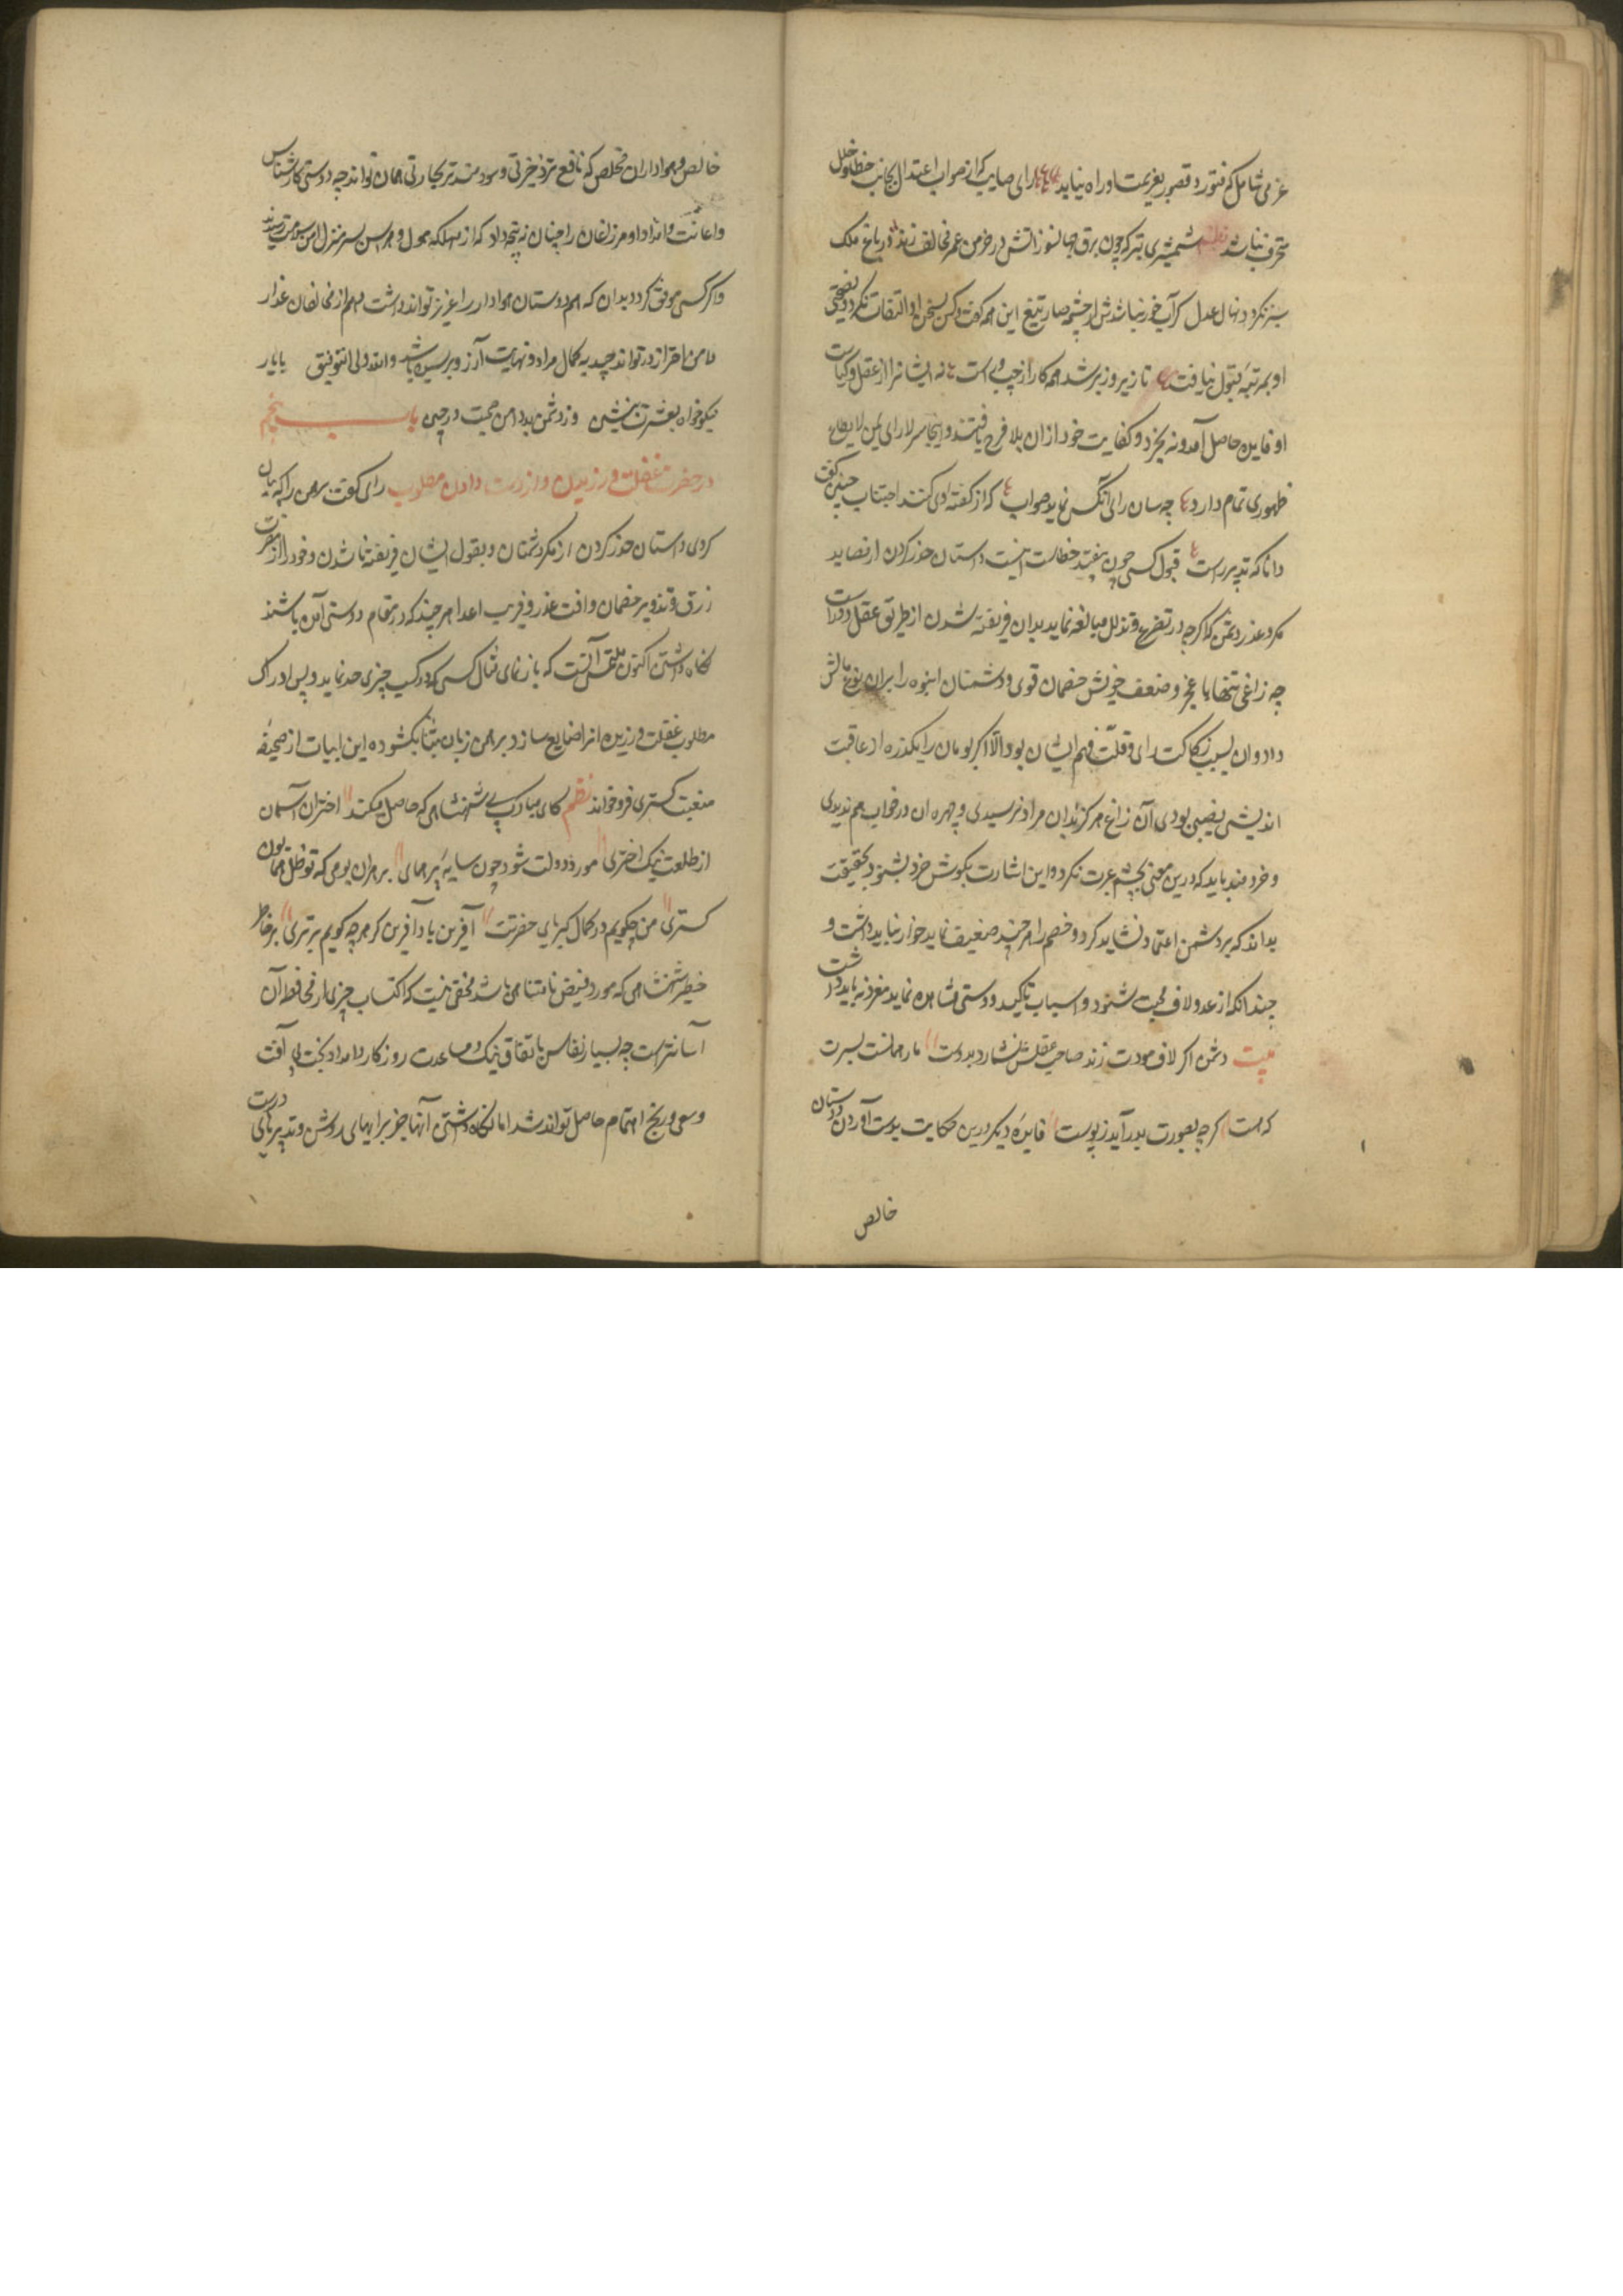 عزمی شامل که فتور و قصور بعزیمت او راه نیابد رای صایب که از صواب اعتدال بجانب خطا و خلل
منحرف نباشد نظم شمشیری تیز که چون برق جهانسوز آتش در خرمن عمر مخالف زند در باغ ملک
سبز نگردد نهال عدل کر آب خور نباشدش از چشمه سار تیغ این همه کفت و کس بسخن او التفات نکرد و نصیحتی
او بمرتبه قبول نیافت تا زیر و زبر شد همه کار از چپ و راست نه ایشانرا از عقل و کیاست
او فایده حاصل آمد و نه بخرد و کفایت خود از ان بلا فرج یافتند و اینجا سر لا رای لمن لا یطاع
ظهوری تمام دارد چه سان رای انکس نماید صواب که از کفته او کنند اجتناب چنین کفت
دانا که تدبیر راست قبول کسی چون نیفتد خطاست اینست داستان حذر کردن از مصاید
مکر و غدر دشمن که اگرچه در تضرع و تذلل مبالغه نماید بدان فریفته شدن از طریق عقل دورست
چه زاغی تنها با عجز و ضعف خویش خصمان قوی و دشمنان انبوه را بران نوع مالش
داد و ان بسبب رکاکت رای و قلت فهم ایشان بود والا اگر بومان را یکذره از عاقبت
اندیشی نصیبی بودی آن زاغ هرگز بدان مراد نرسیدی و چهره ان در خواب هم ندیدی
و خردمند باید که درین معنی بچشم عبرت نکرد و این اشارت بکوش خرد بشنود و بحقیقت
بداند که بر دشمن اعتماد نشاید کرد و خصم را هر چند ضعیف نماید خوار نباید داشت و
چندانکه از عدو لاف محبت شنود و اسباب تاکید دوستی مشاهده نماید مغرور نباید گشت
بیت دشمن اگر لاف مودت زند صاحب عقلش نشمارد بدوست مار همانست بسیرت
که هست گرچه بصورت بدر آید ز پوست فایده دیکر درین حکایت بدست آوردن دوستان
خالص
خالص و هواداران مخلص که نافع تر ذخیرتی و سودمندتر تجارتی همان تواند چه دوستی کارشناس
و اعانت و امداد او مر زاغان را چنان نتیجه داد که از مهلکه هول و هراس بسر منزل امن و سلامت رسیدند
و اگر کسی موفق گردد بدان که هم دوستان هوادار را عزیز تواند داشت و هم از مخالفان غدار
دامن احتراز در تواند چید بکمال مراد و نهایت آرزو برسیده باشد والله ولی التوفیق با یار
نیکوخواه بعشرت بنشین وز دشمن بد دامن صحبت در چین باب پنجم
در مضرت غفلت ورزیدن و از دست دادن مطلوب رای کفت برهمن را که بیان
کردی داستان حذر کردن از مکر دشمنان و بقول ایشان فریفته نا شدن و خود را از مضرت
زرق و تزویر خصمان و آفت غدر و فریب اعدا هر چند که در مقام دوستی آمده باشند
نکاه داشتن اکنون ملتمس آنست که باز نمای مثال کسی که در کسب چیزی جد نماید و پس ادراک
مطلوب غفلت ورزیده انرا ضایع سازد برهمن زبان بثنا بکشوده این ابیات از صحیفه
منقبت کستری فرو خواند نظم کای مبارک پی شهنشاهی که حاصل میکند اختران آسمان
از طلعت نیک اختری مورد دولت شود چون سایه پر همای بر هران بومی که تو ظل همایون
کستری من چکویم در کمال کبریای حضرتت آفرین باد آفرین کز هرچه کویم برتری بر خاطر
خطیر شهنشاهی که مورد فیض نامتناهی باشد مخفی نیست که اکتساب چیزی از محافظه آن
آسانتر است چه بسیار نفایس باتفاق نیک و مساعدت روزکار و امداد بخت بی آفت
و سعی و رنج اهتمام حاصل تواند شد اما نکاه داشتن آنها جز برایهای روشن و تدبیرهای درست